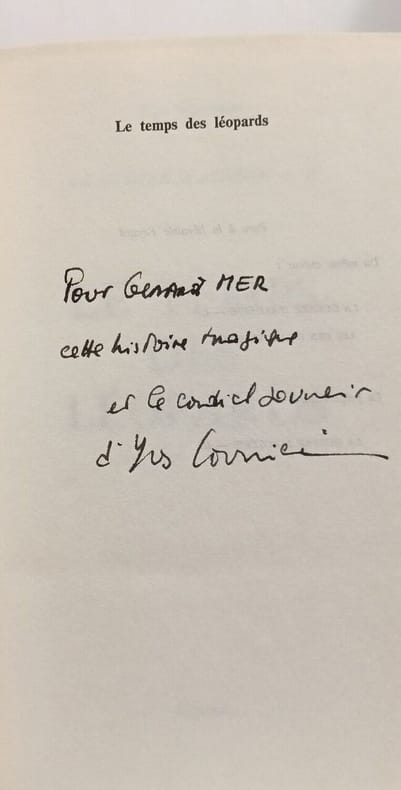 Le temps des léopards
Pour Gérard MER
cette histoire tragique
et le cordial souvenir
d'Yves Courrière